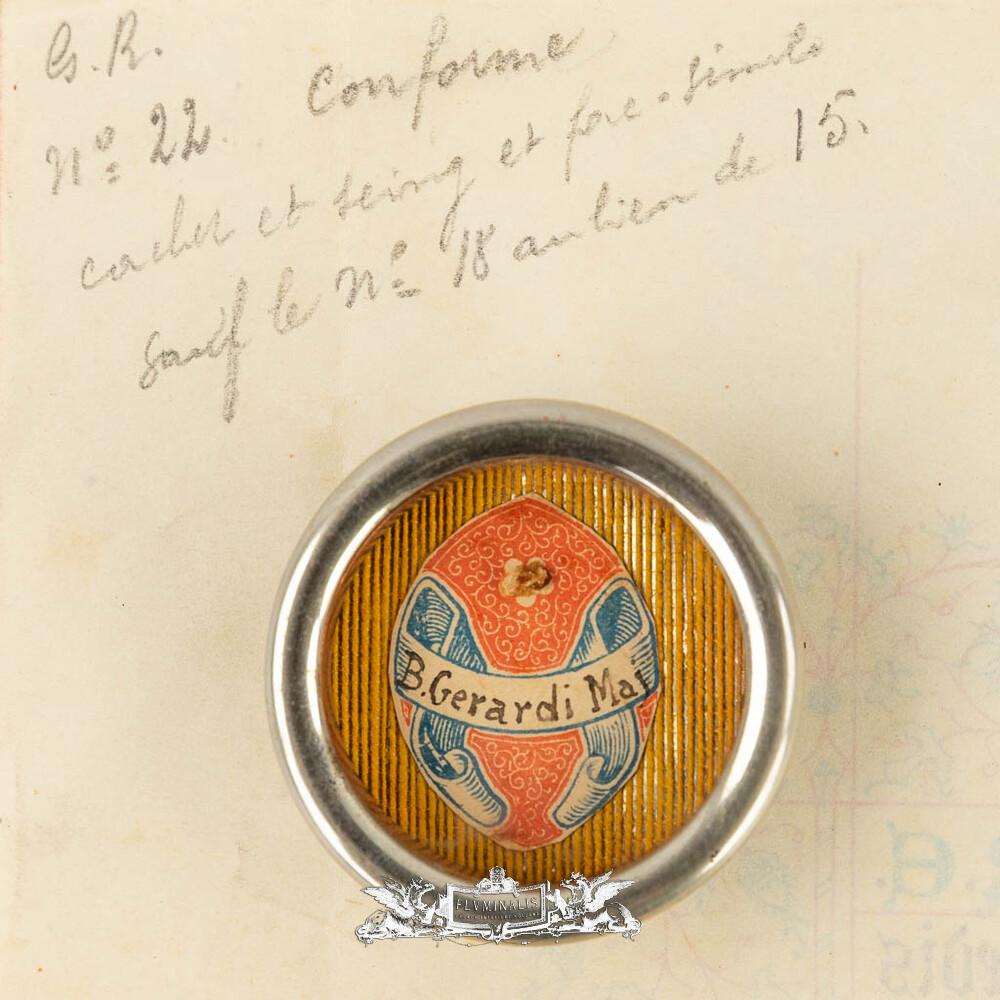 G. R.
Nº 22. Conforme
cachet et seing et fac-simile
sauf le Nº 18 au lieu de 15.
B. Gerardi Maj
FLVMINALIS